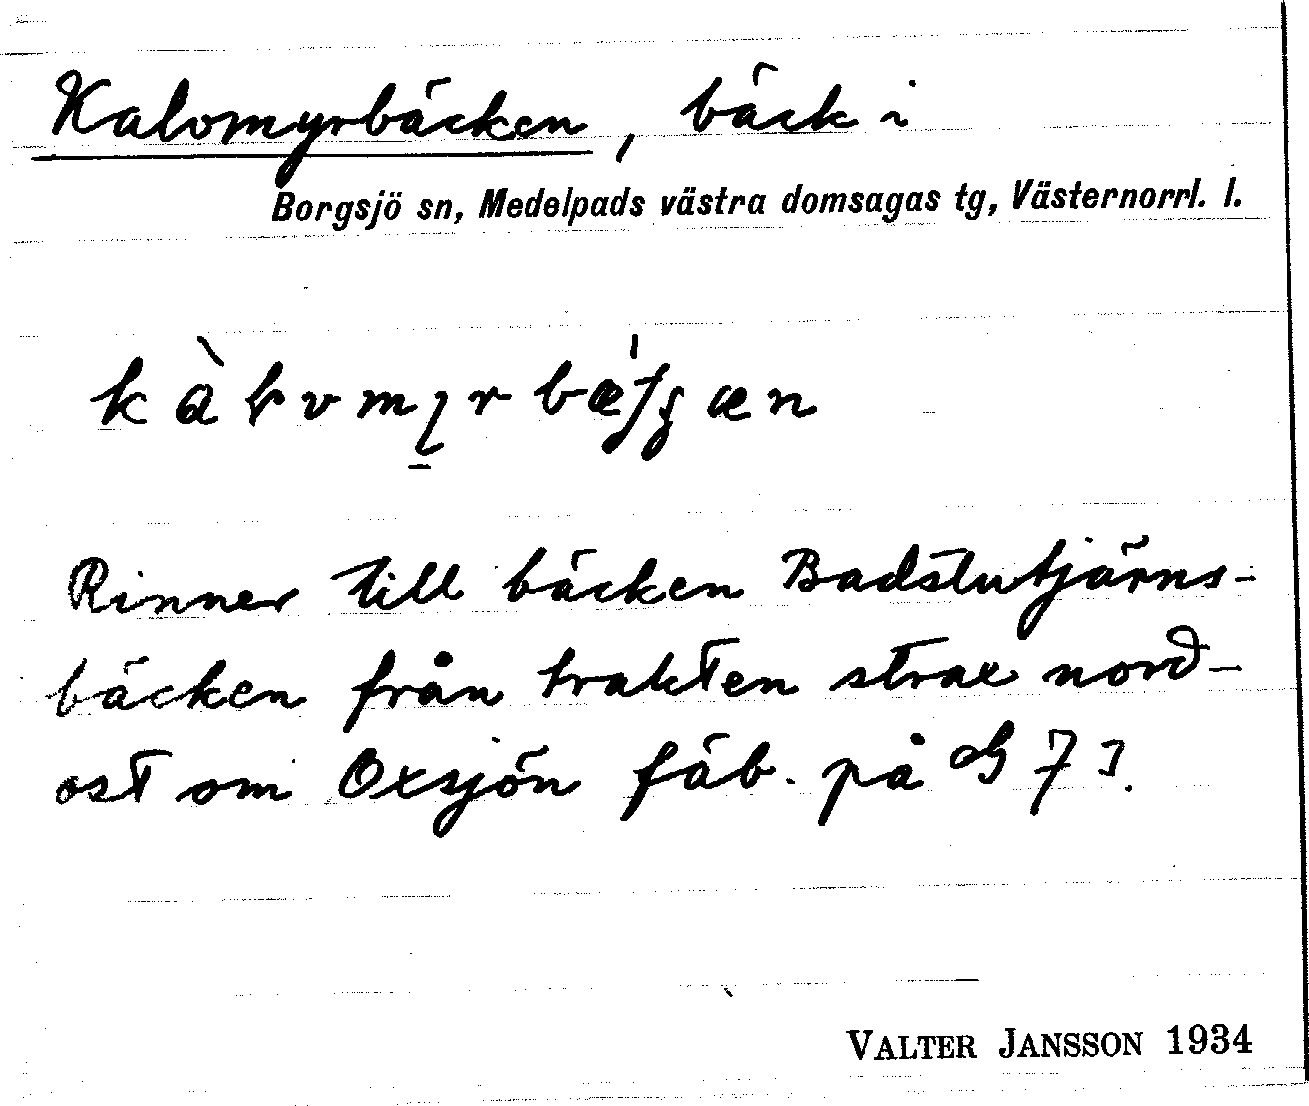 Kalomyrbäcken, bäck i
Borgsjö sn, Medelpads västra domsagas tg, Västernorrl. l.
Rinner till bäcken Badstutjärns-
bäcken från trakten strax nord-
ost om Oxsjön fäb. på G 7 J.
VALTER JANSSON 1934